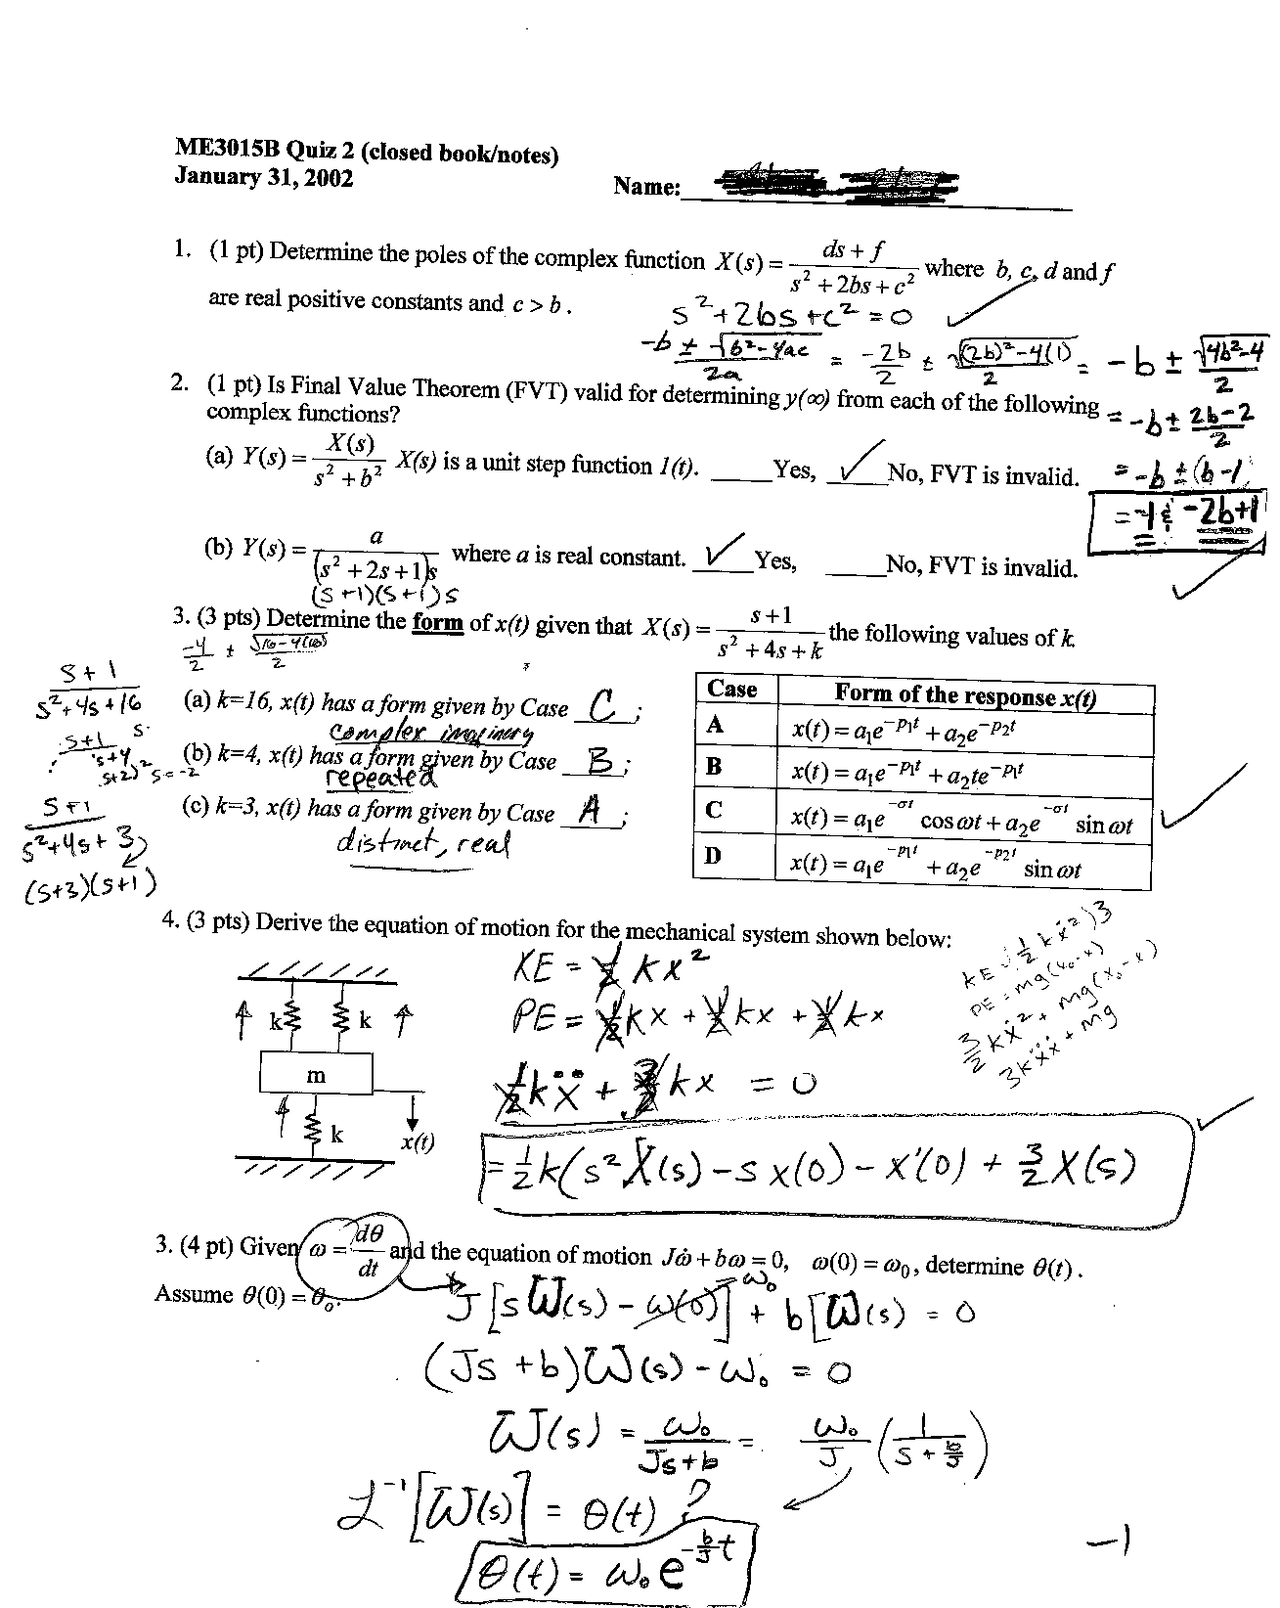 ME3015B Quiz 2 (closed book/notes)
January 31, 2002
Name:
1. (1 pt) Determine the poles of the complex function X(s) = (ds + f)/(s² + 2bs + c²) where b, c, d and f
are real positive constants and c > b.
s² + 2bs + c² = 0
-b ± √(b²-4ac)/2a = -2b/2 ± √((2b)²-4(1))/2 = -b ± √(4b²-4)/2
= -b ± (2b-2)/2
= -b ± (b-1)
= -1 & -2b+1
2. (1 pt) Is Final Value Theorem (FVT) valid for determining y(∞) from each of the following
complex functions?
(a) Y(s) = X(s)/(s² + b²) X(s) is a unit step function 1(t). ____ Yes, __✓__ No, FVT is invalid.
(b) Y(s) = a/((s² + 2s + 1)s) where a is real constant. __✓__ Yes, ____ No, FVT is invalid.
(s+1)(s+1)s
3. (3 pts) Determine the form of x(t) given that X(s) = (s+1)/(s² + 4s + k) the following values of k.
-4/2 ± √(16-4(16))/2
(s+1)/(s²+4s+16)
(a) k=16, x(t) has a form given by Case C ;
complex imaginary
s+1
s+4
(s+2)² s=-2
(b) k=4, x(t) has a form given by Case B ;
repeated
(s+1)/(s²+4s+3)
(c) k=3, x(t) has a form given by Case A ;
distinct, real
(s+3)(s+1)
Case Form of the response x(t)
A x(t) = a₁e^(-p₁t) + a₂e^(-p₂t)
B x(t) = a₁e^(-p₁t) + a₂te^(-p₁t)
C x(t) = a₁e^(-σt) cos ωt + a₂e^(-σt) sin ωt
D x(t) = a₁e^(-p₁t) + a₂e^(-p₂t) sin ωt
4. (3 pts) Derive the equation of motion for the mechanical system shown below:
k k
m
k
x(t)
KE = ½ kx²
PE = ½kx + ½kx + ½kx
½kẍ + 3/2 kx = 0
= ½k(s²X(s) - s x(0) - x'(0) + 3/2 X(s)
KE = ½ kẋ²)3
PE = mg(x₀-x)
3/2 kẋ² + mg(x₀-x)
3kẍẋ + mg
3. (4 pt) Given ω = dθ/dt and the equation of motion Jω̇ + bω = 0, ω(0) = ω₀, determine θ(t).
Assume θ(0) = θ₀.
J[sW(s) - ω(0)] + b[W(s) = 0
= ω₀
(Js + b)W(s) - ω₀ = 0
W(s) = ω₀/(Js+b) = ω₀/J (1/(s + b/J))
ℒ⁻¹[W(s)] = θ(t) ?
θ(t) = ω₀e^(-b/J t)
-1